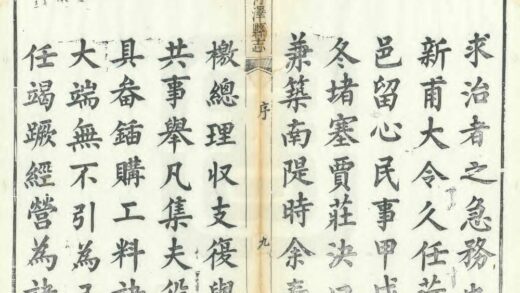 求治者之急務
新甫大令久任
邑留心民事甲戌
冬堵塞賈莊決口
兼築南隄時余奉
澤縣志
序
九
檄總理収支復與
共事舉凡集夫役
具畚鍤購工料
大端無不引為
任竭蹶經營為